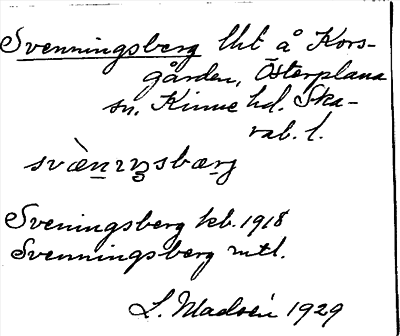 Svenningsberg lht å Kors-
gården, Österplana
sn, Kinne hd. Ska-
rab. l.
Sveningsberg kb. 1918
Svenningsberg mtl.
L. Madsén 1929